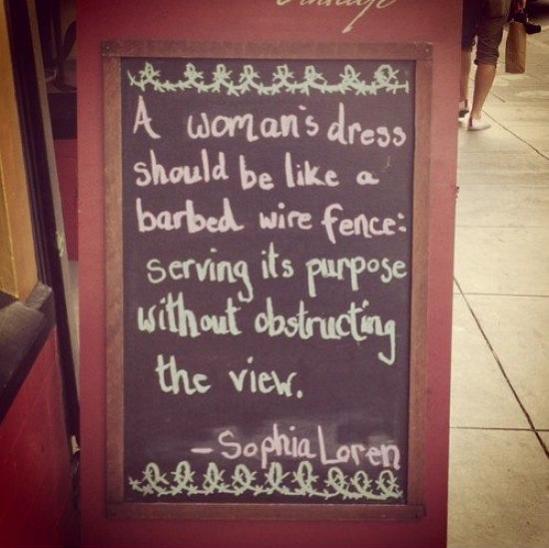 A woman's dress
should be like a
barbed wire fence:
serving its purpose
without obstructing
the view.
- Sophia Loren